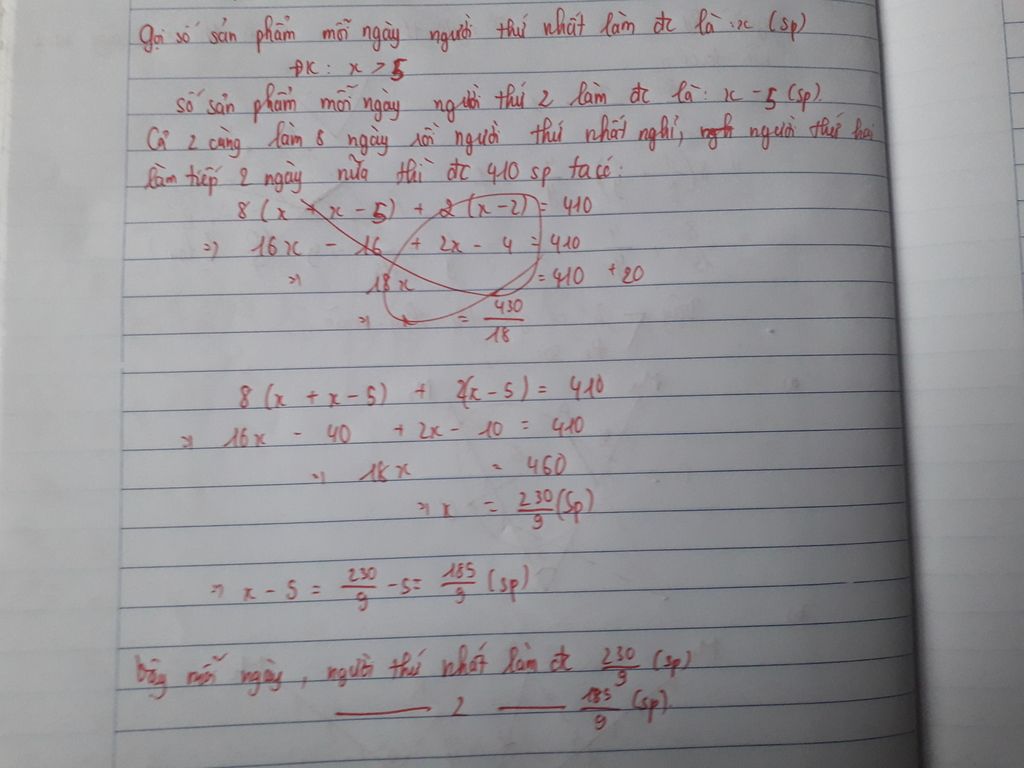 Gọi số sản phẩm mỗi ngày người thứ nhất làm đc là : x (sp)
ĐK : x > 5
số sản phẩm mỗi ngày người thứ 2 làm đc là : x - 5 (sp).
Cả 2 cùng làm 8 ngày rồi người thứ nhất nghỉ, người thứ hai
làm tiếp 2 ngày nữa thì đc 410 sp ta có :
8 (x + x - 5) + 2 (x - 2) = 410
=> 16x - 16 + 2x - 4 = 410
=> 18x = 410 + 20
=> x = 430/18
8 (x + x - 5) + 2(x - 5) = 410
=> 16x - 40 + 2x - 10 = 410
=> 18x = 460
=> x = 230/9 (sp)
=> x - 5 = 230/9 - 5 = 185/9 (sp)
Vậy mỗi ngày, người thứ nhất làm đc 230/9 (sp)
—— 2 —— 185/9 (sp).